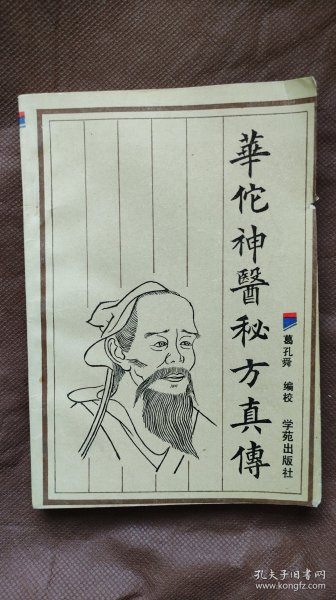 華佗神醫秘方真傳
葛孔舜 編校 学苑出版社
孔夫子旧书网
www.kongfz.com